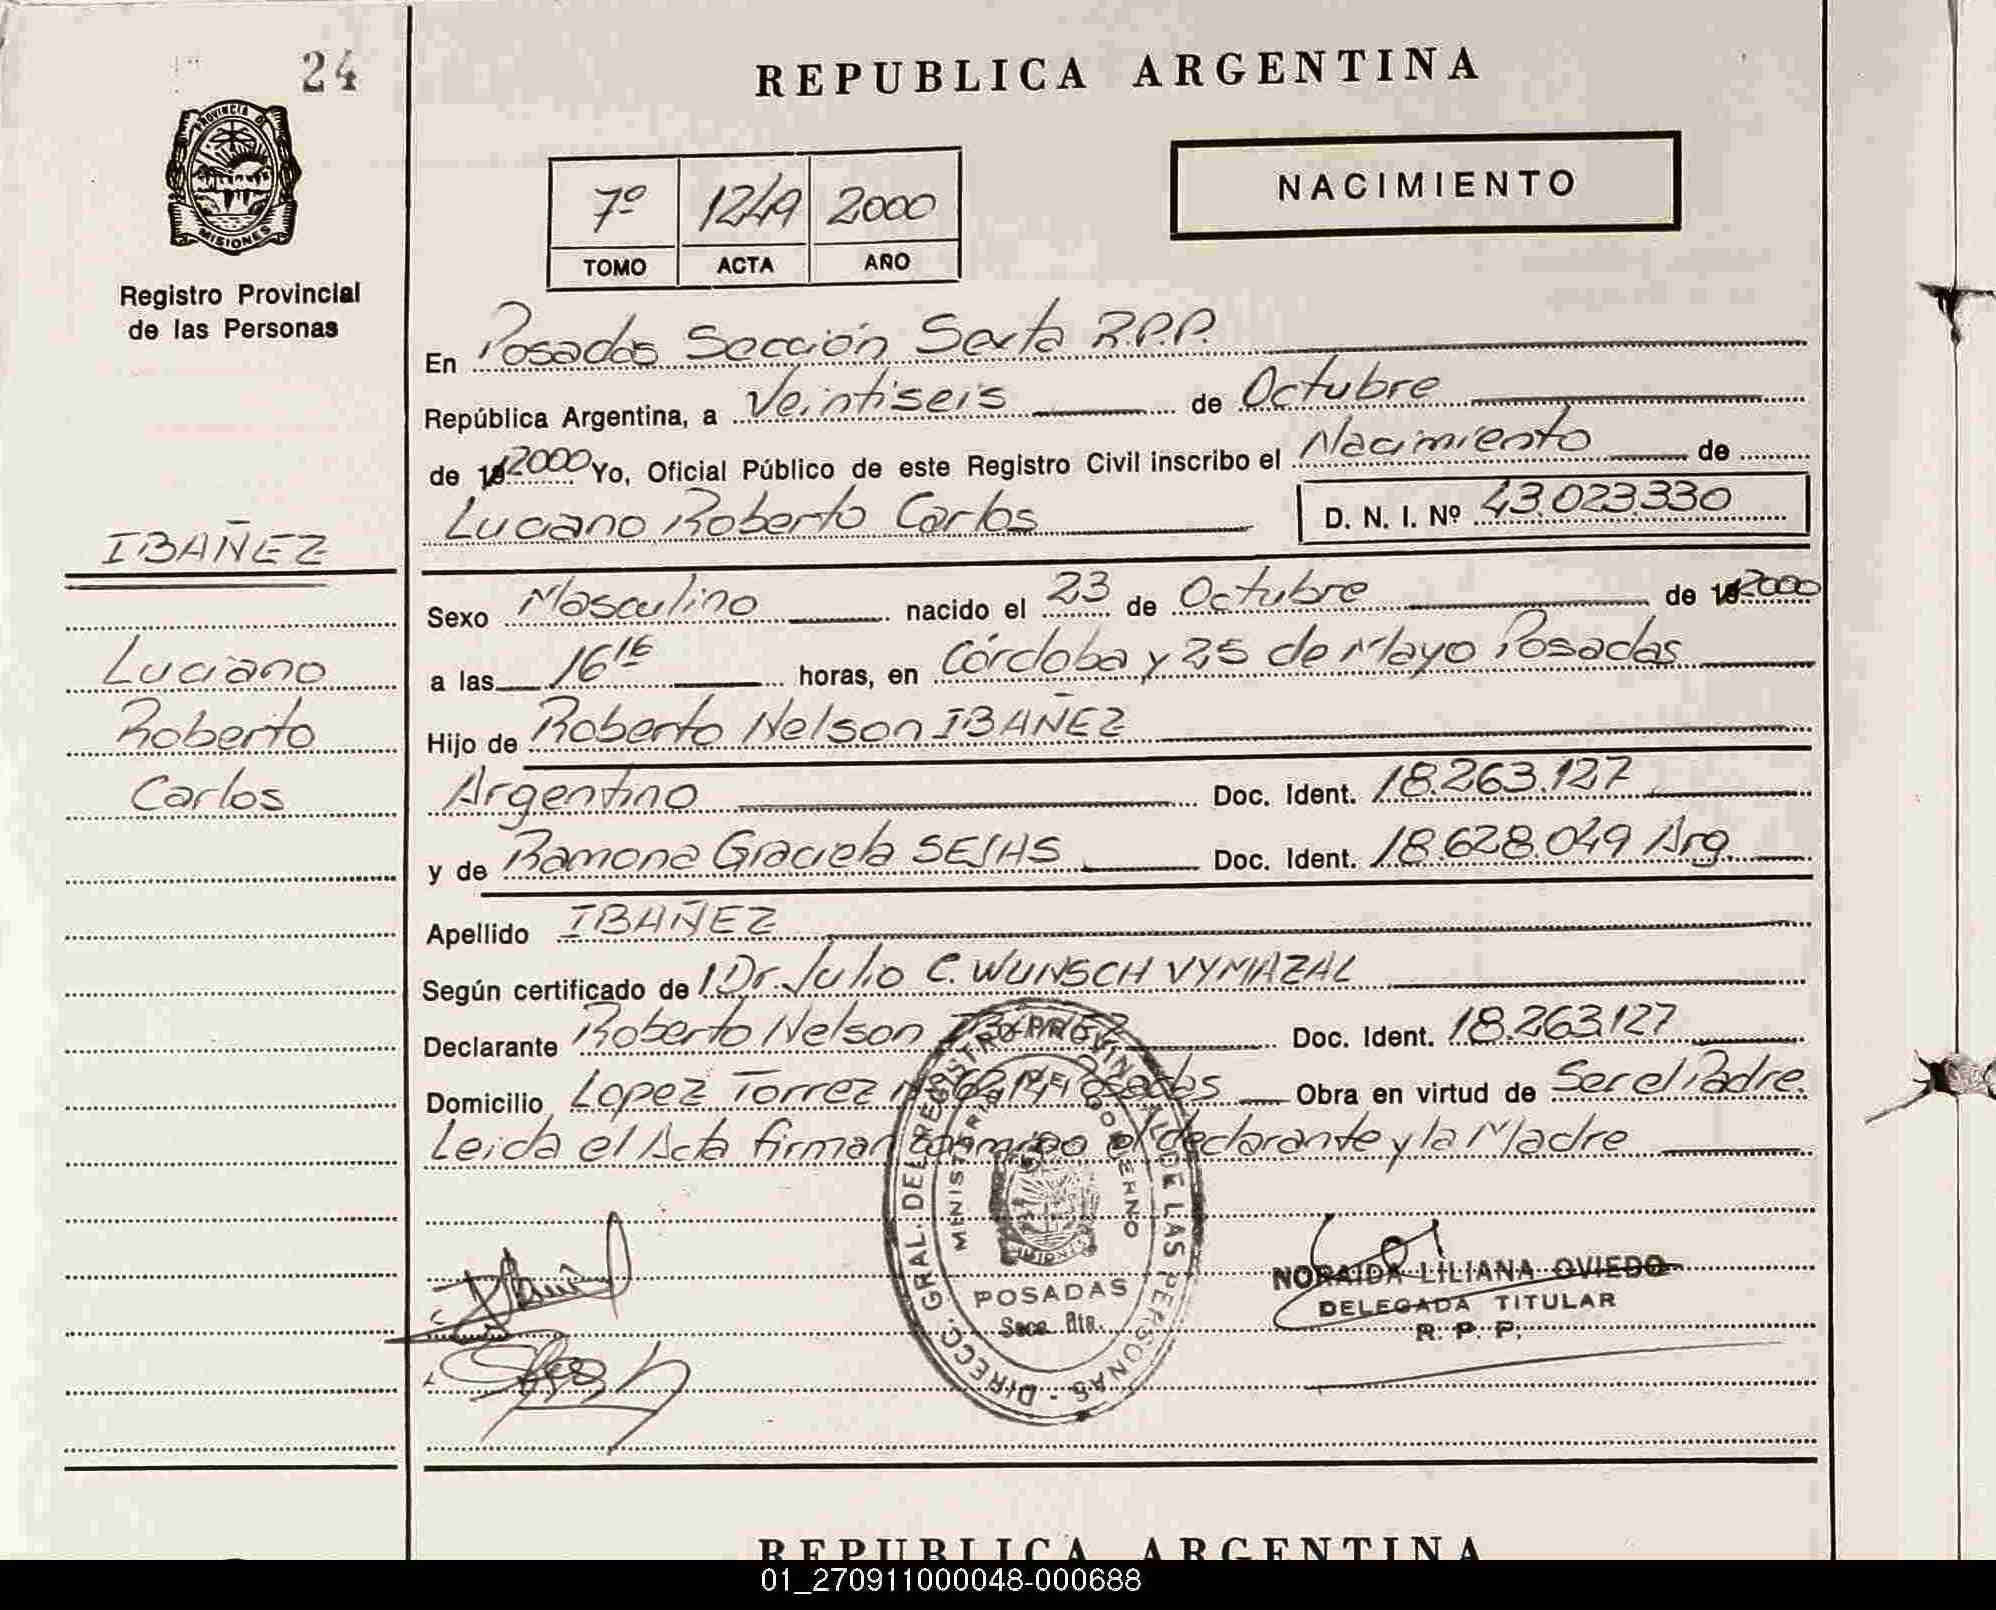 24
REPUBLICA ARGENTINA
PROVINCIA D
MISIONES
Registro Provincial
de las Personas
NACIMIENTO
7º 1249 2000
TOMO ACTA AÑO
En Posadas Sección Sexta R.P.P.
República Argentina, a Veintiseis de Octubre
de 2000 Yo, Oficial Público de este Registro Civil inscribo el Nacimiento de
Luciano Roberto Carlos D. N. I. Nº 43.023.330
IBAÑEZ
Luciano
Roberto
Carlos
Sexo Masculino nacido el 23 de Octubre de 2000
a las 16 15 horas, en Córdoba y 25 de Mayo Posadas
Hijo de Roberto Nelson IBAÑEZ
Argentino Doc. Ident. 18.263.127
y de Ramona Graciela Doc. Ident. 18.628.049 Arg.
Apellido IBAÑEZ
Según certificado de Dr. Julio C. WUNSCH VYMAZAL
Declarante Roberto Nelson IBAÑEZ Doc. Ident. 18.263.127
Domicilio Lopez Torrez Posadas Obra en virtud de Ser el Padre.
Leida el Acta firman conmigo el declarante y la Madre
DIRECC. GRAL. DEL REGISTRO PROVIN. DE LAS PERSONAS
MINISTERIO DE GOBIERNO
MISIONES
POSADAS
Secc. 6ta.
NORAIDA LILIANA OVIEDO
DELEGADA TITULAR
R. P. P.
REPUBLICA ARGENTINA
01_270911000048-000688